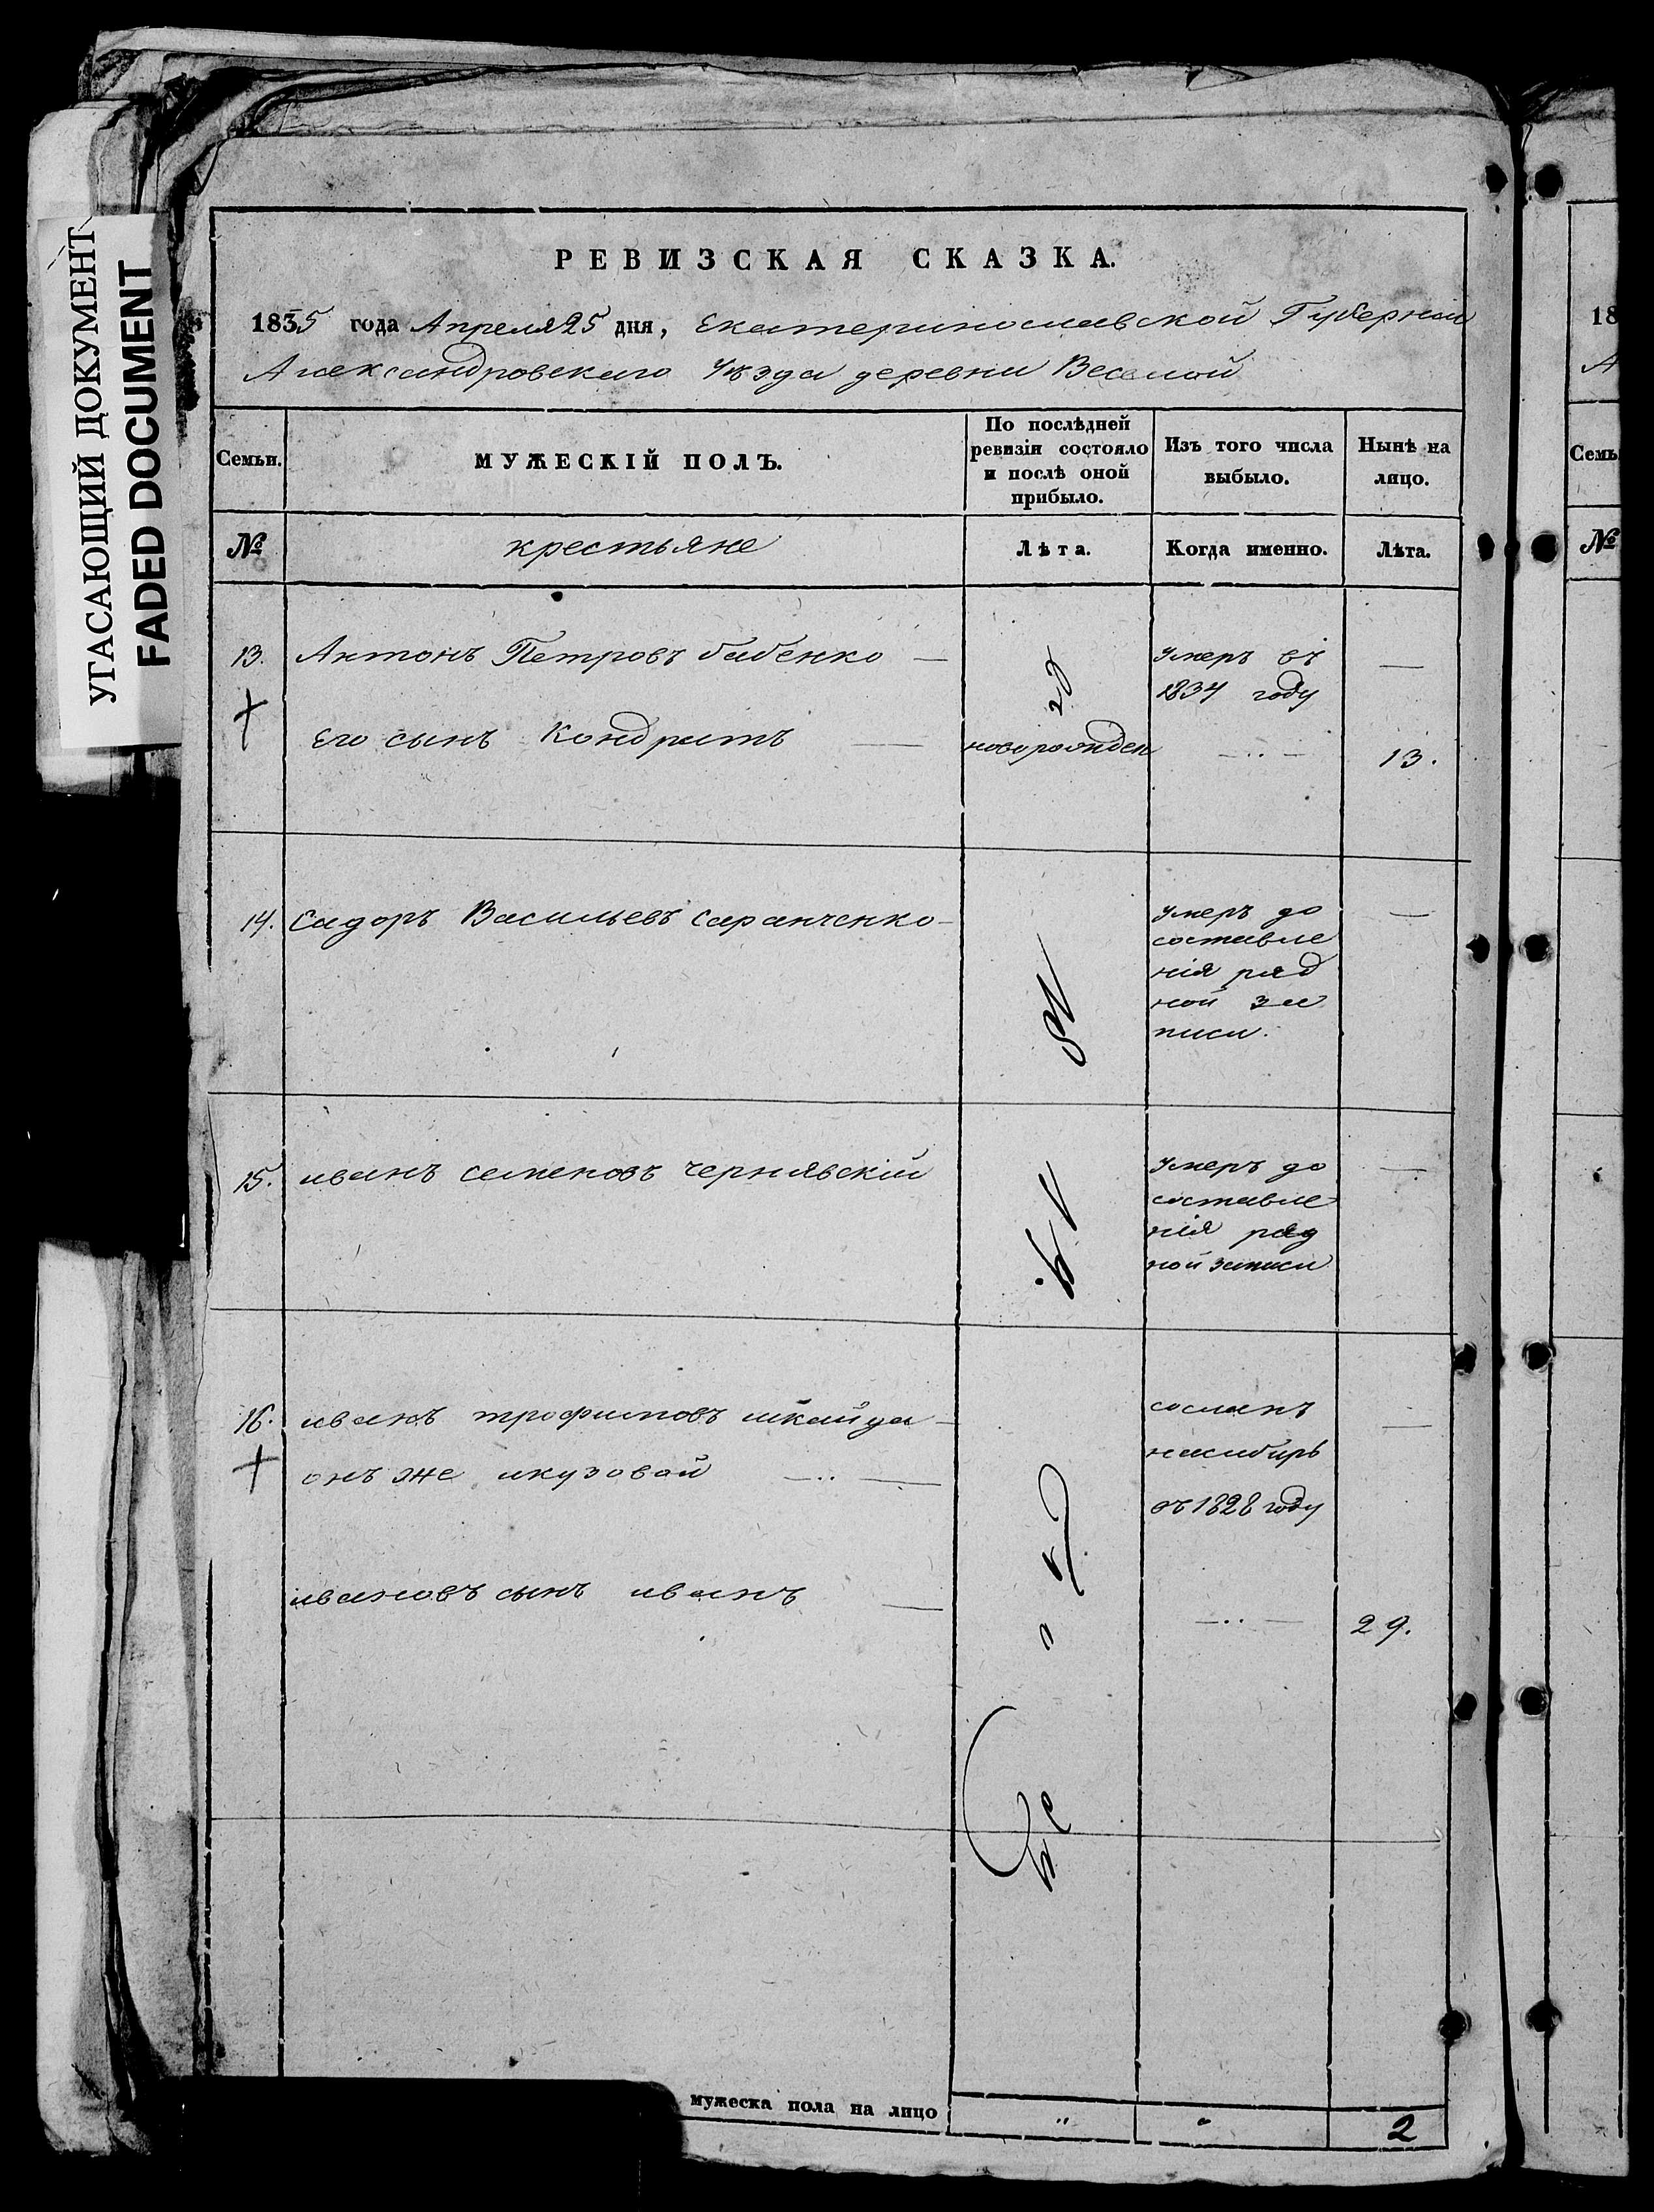 УГАСАЮЩИЙ ДОКУМЕНТ
FADED DOCUMENT
РЕВИЗСКАЯ СКАЗКА.
1835 года Апреля 25 дня, Екатеринославской Губерніи
Александровского Уѣзда деревни Веселой
Семьи.
МУЖЕСКІЙ ПОЛЪ.
По послѣдней
ревизіи состояло
и послѣ оной
прибыло.
Изъ того числа
выбыло.
Нынѣ на
лицо.
№
крестьяне
Лѣта.
Когда именно.
Лѣта.
13. Антонъ Петровъ бабенко — умеръ въ —
1834 году
Его сынъ Кондратъ — новорожден —..— 13.
14. Сидоръ Васильевъ саранченко — умеръ до —
составле
нія ряд
ной за
писи.
15. иванъ семеновъ чернявскій умеръ до —
составле
нія ряд
ной записи
16. иванъ трофимовъ сосланъ —
онъ же —..— насибирь
въ 1828 году
ивановъ сынъ иванъ — —..— 29.
мужеска пола на лицо " " 2
18
А
Семь
№